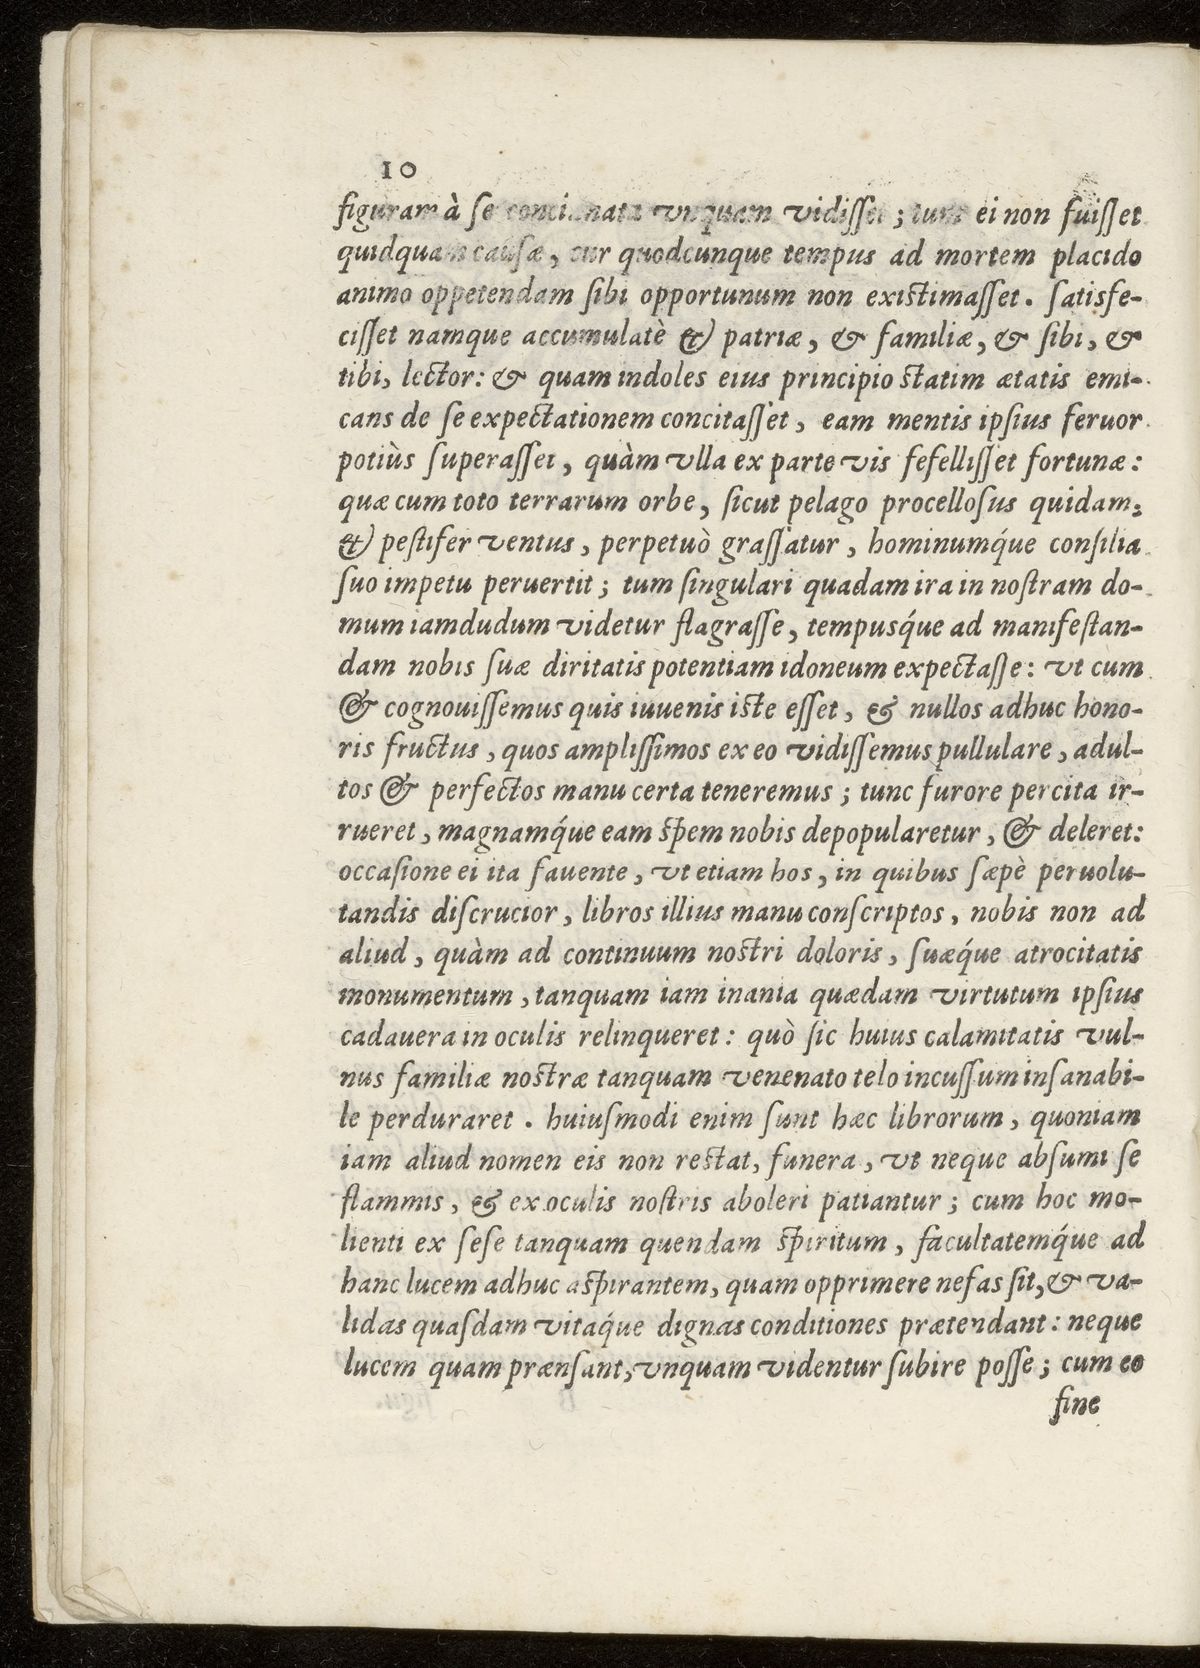 10
figuram à se concinnata vnquam vidisset; tum ei non fuisset
quidquam causæ, cur quodcunque tempus ad mortem placido
animo oppetendam sibi opportunum non existimasset. satisfe-
cisset namque accumulatè & patriæ, & familiæ, & sibi, &
tibi, lector: & quam indoles eius principio statim ætatis emi-
cans de se expectationem concitasset, eam mentis ipsius feruor
potiùs superasset, quàm vlla ex parte vis fefellisset fortunæ:
quæ cum toto terrarum orbe, sicut pelago procellosus quidam,
& pestifer ventus, perpetuò grassatur, hominumq́ue consilia
suo impetu peruertit; tum singulari quadam ira in nostram do-
mum iamdudum videtur flagrasse, tempusq́ue ad manifestan-
dam nobis suæ diritatis potentiam idoneum expectasse: vt cum
& cognouissemus quis iuuenis iste esset, & nullos adhuc hono-
ris fructus, quos amplissimos ex eo vidissemus pullulare, adul-
tos & perfectos manu certa teneremus; tunc furore percita ir-
rueret, magnamq́ue eam spem nobis depopularetur, & deleret:
occasione ei ita fauente, vt etiam hos, in quibus sæpè peruolu-
tandis discrucior, libros illius manu conscriptos, nobis non ad
aliud, quàm ad continuum nostri doloris, suæq́ue atrocitatis
monumentum, tanquam iam inania quædam virtutum ipsius
cadauera in oculis relinqueret: quò sic huius calamitatis vul-
nus familiæ nostræ tanquam venenato telo incussum insanabi-
le perduraret. huiusmodi enim sunt hæc librorum, quoniam
iam aliud nomen eis non restat, funera, vt neque absumi se
flammis, & ex oculis nostris aboleri patiantur; cum hoc mo-
lienti ex sese tanquam quendam spiritum, facultatemq́ue ad
hanc lucem adhuc aspirantem, quam opprimere nefas sit, & va-
lidas quasdam vitaq́ue dignas conditiones prætendant: neque
lucem quam prænsant, vnquam videntur subire posse; cum eo
fine